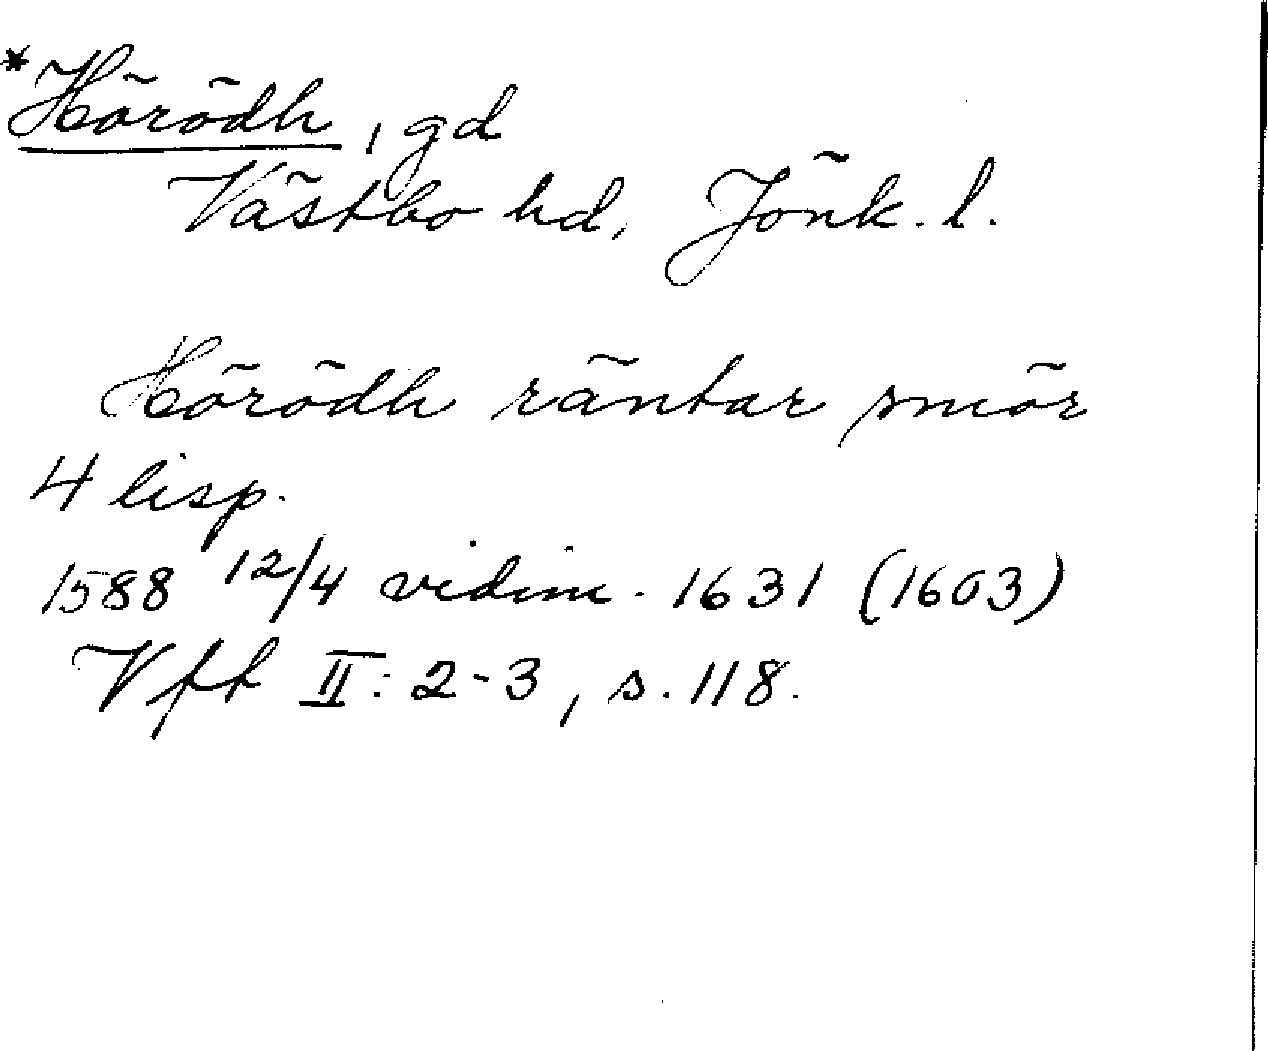 *Hörödh, gd
Västbo hd, Jönk. l.
Hörödh räntar smör
4 lisp.
1588 12/4 vidim. 1631 (1603)
Vft II: 2-3, s. 118.